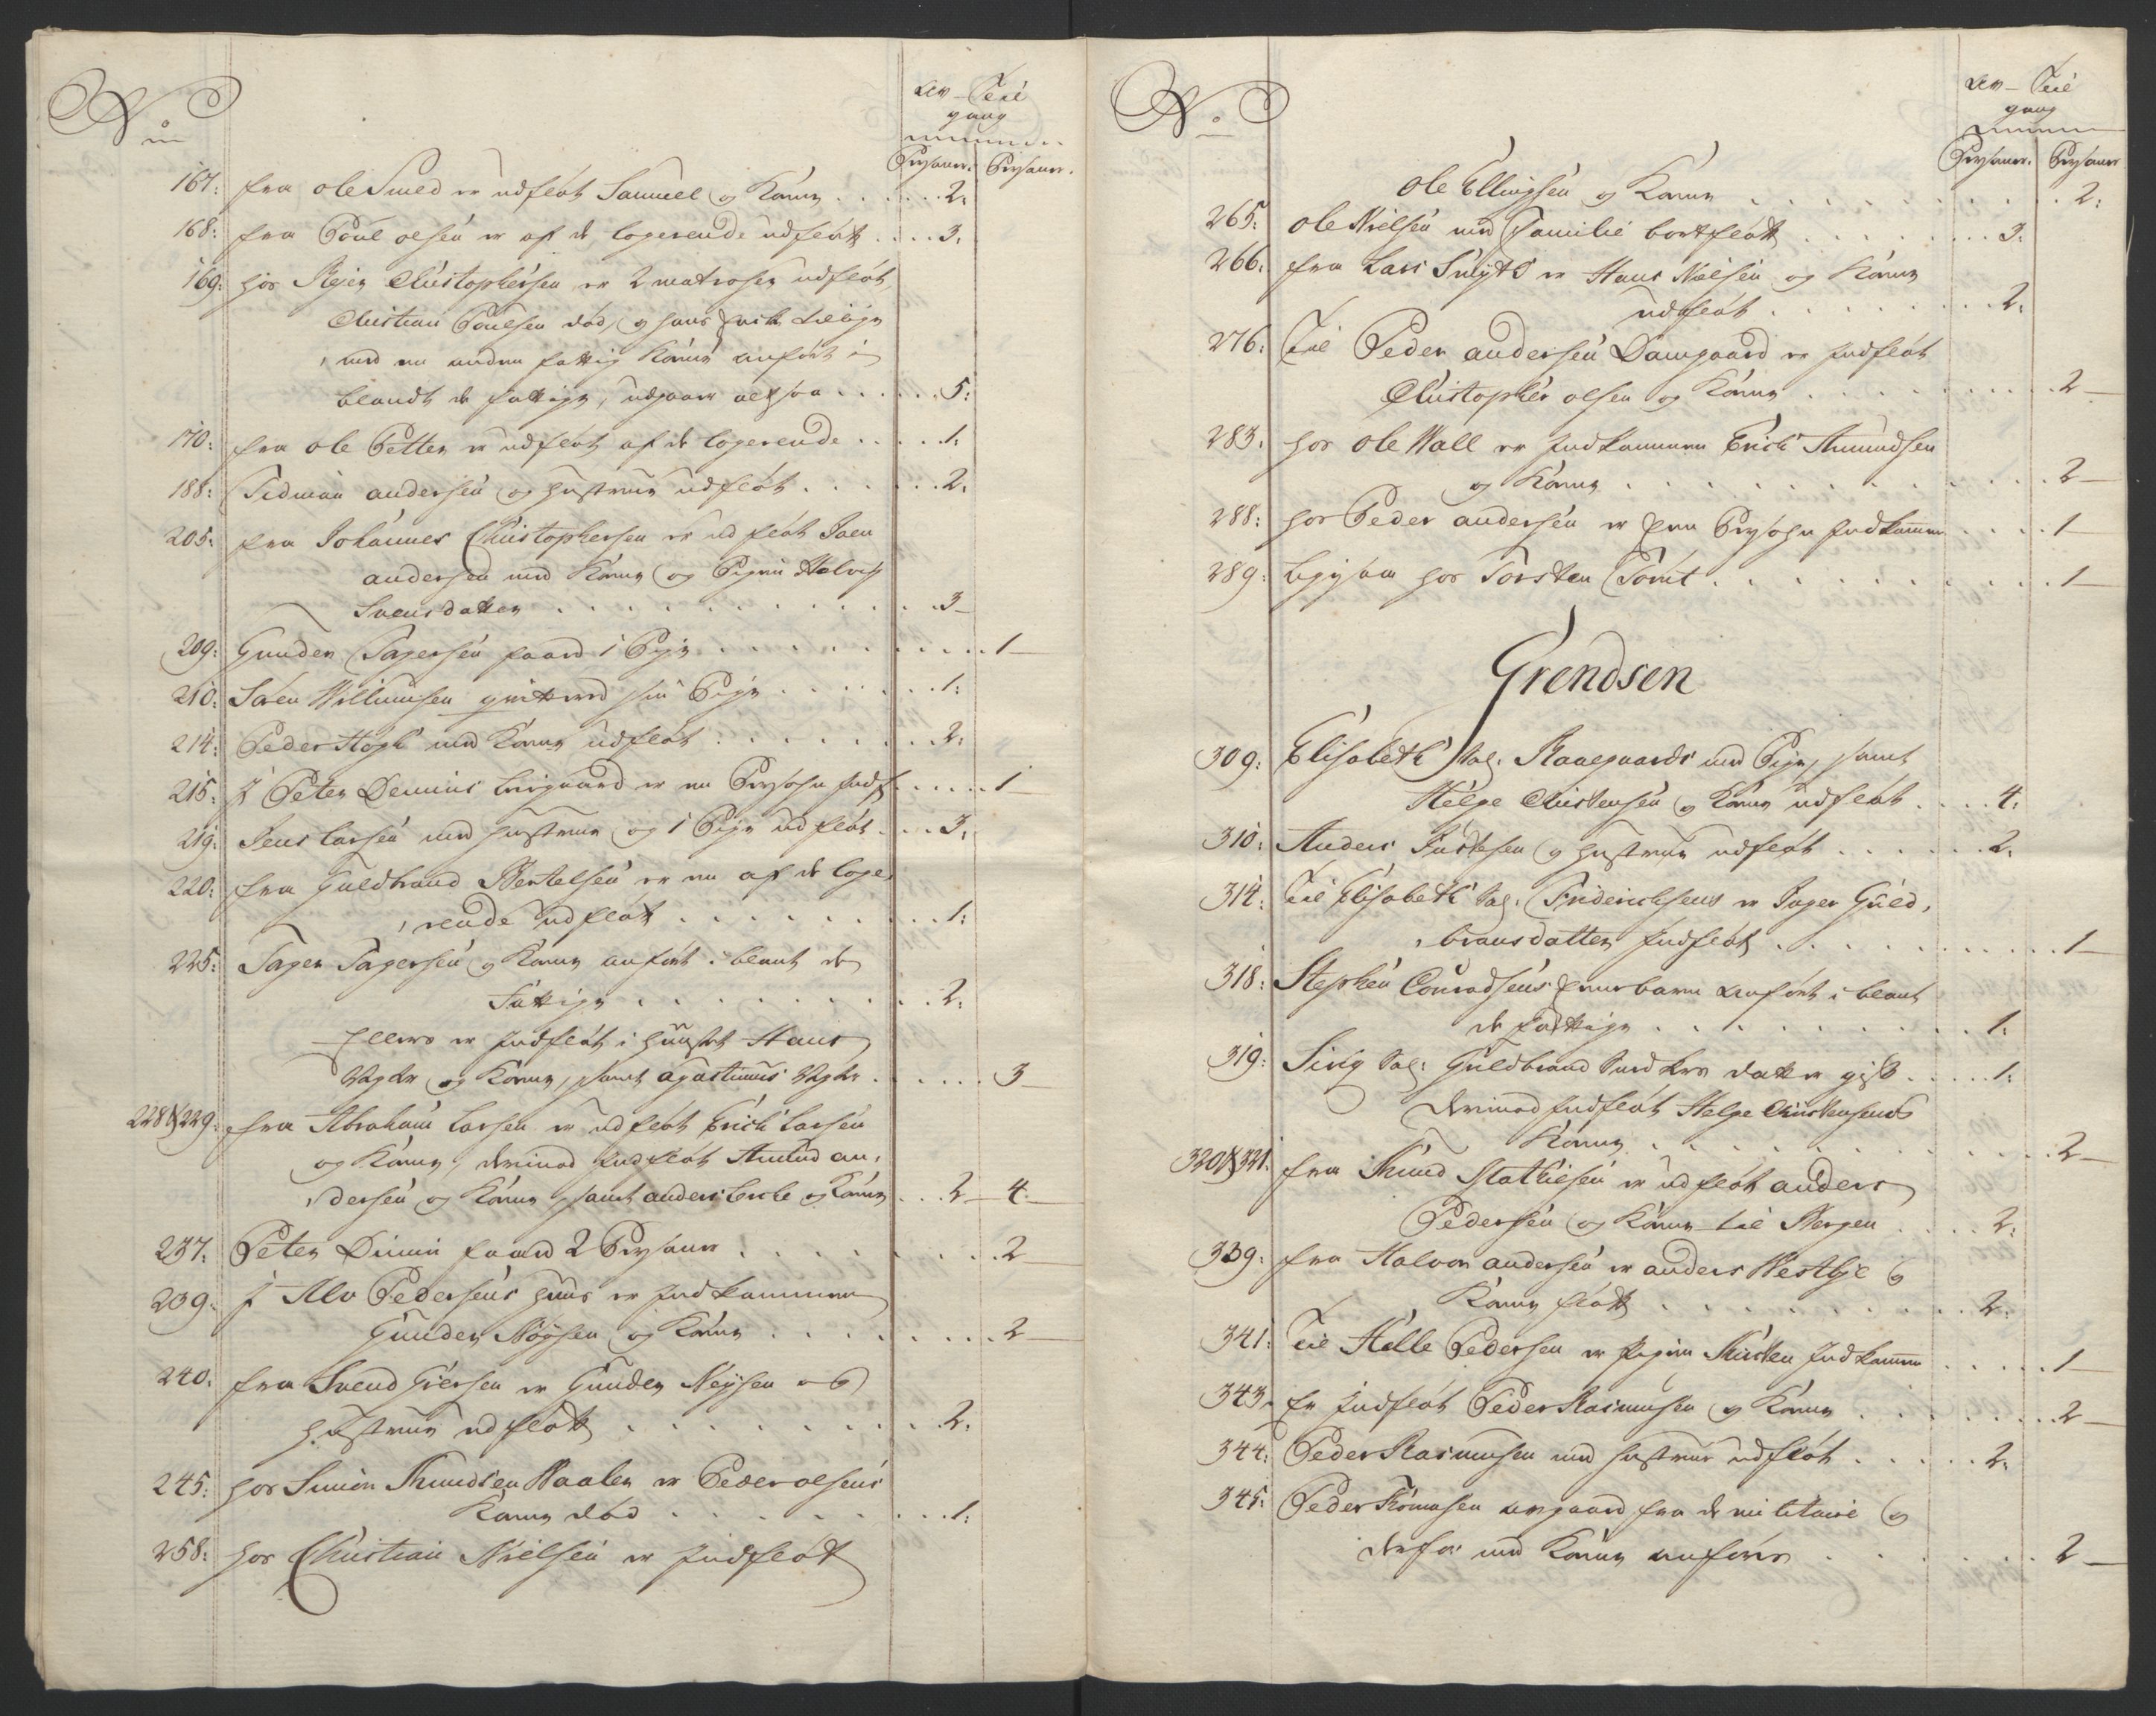 No
Av- Til
gang
Persohner. Persohner.
167: fra Ole Smed er udfløt Samuel og Kone . . . 2.
168: fra Poul Olsen er af de logerende udfløtt . . . 3.
169: hos Christophersen er 2 matroser udfløt,
Christian Poulsen død, og hans
med en anden fattig Kone anført i
blandt de fattige, udgaar altsaa . . . 5:
170: fra Ole Petter er udfløt af de logerende . . . 1.
188: Tidman Andersen og hustrue udfløt . . . 2.
205: fra Johannes Christophersen er udfløt Joen
Andersen med Kone og Pigen
Svensdatter . . . 3-
209: Gunder Tagersen faaed 1 Pige . . . 1-
210: Søren Willumsen qvitered sin Pige . . . 1:
214: Peder Høgh med Kone udfløt . . . 2:
215: I Peter Dennis er en Persohn Indf . . . 1-
219: Jens Larsen med hustrue og 1 Pige udfløt . . . 3.
220: fra Guldbrand Bertelsen er en af de loge,
rende udfløtt . . . 1:
225: Tager Tagersen og Kone anført i blant de
Fattige . . . 2:
Ellers er Indfløt i huuset Hans
og Kone, samt Agustinus . . . 3-
228 & 229: fra Abraham Larsen er udfløt Erich Larsen
og Kone, derimod Indfløt Amund an,
dersen og Kone, samt anders og Kone . . . 2- 4-
237: Peter Dinnis faaed 2 Persohner . . . 2-
239: I Alv Pedersens huus er Indkommen
Gunder Nøysen og Kone . . . 2-
240: fra Svend Giersen er Gunder Neysen og
hustrue udfløtt . . . 2:
245: hos Simon Knudsen Waaler er Peder Olsens
Kone død . . . 1:
258: hos Christian Nielsen er Indfløt
No
Av- Til
gang
Persohner. Persohner
Ole Ellingsen og Kone . . . 2:
265: Ole Nielsen med Familie bortfløtt . . . 3:
266: fra Lars er Hans Nielsen og Kone
udfløt . . . 2:
276: Til Peder Andersen Damgaard er Indfløt
Christopher Olsen og Kone . . . 2-
283: hos Ole Wall er Indkommen Erich Amundsen
og Kone . . . 2-
288: hos Peder Andersen er een Persohn Indkommen . . . 1-
289: ligesaa hos Torsten . . . 1-
Grendsen
309: Elisabeth Sal: med Pige, samt
Helge Christensen og Kone udfløt . . . 4:
310: Anders Justesen og hustrue udfløt . . . 2.
314: Til Elisabeth Sal: Friderichsens er Inger Guld,
bransdatter Indfløt . . . 1-
318: Stephen Conradsens barn anført i blant
de fattige . . . 1:
319: Siri Sal: Guldbrand datter gift . . . 1:
derimod Indfløt Helge Christensens
Kone . . . 2-
320 & 321: fra Knud Mathiesen er udfløt anders
Pedersen og Kone til Bergen . . . 2:
339: fra Halvor Andersen er anders Westbye og
Kone fløtt . . . 2:
341: Til Helle Pedersen er Pigen Kirsten Indkommen . . . 1-
343: Er Indfløt Peder Rasmusen og Kone . . . 2-
344: Peder Rasmusen med hustrue udfløt . . . 2:
345: Peder Tomasen avgaaed fra de militaire og
derfor med Kone anføres . . . 2-